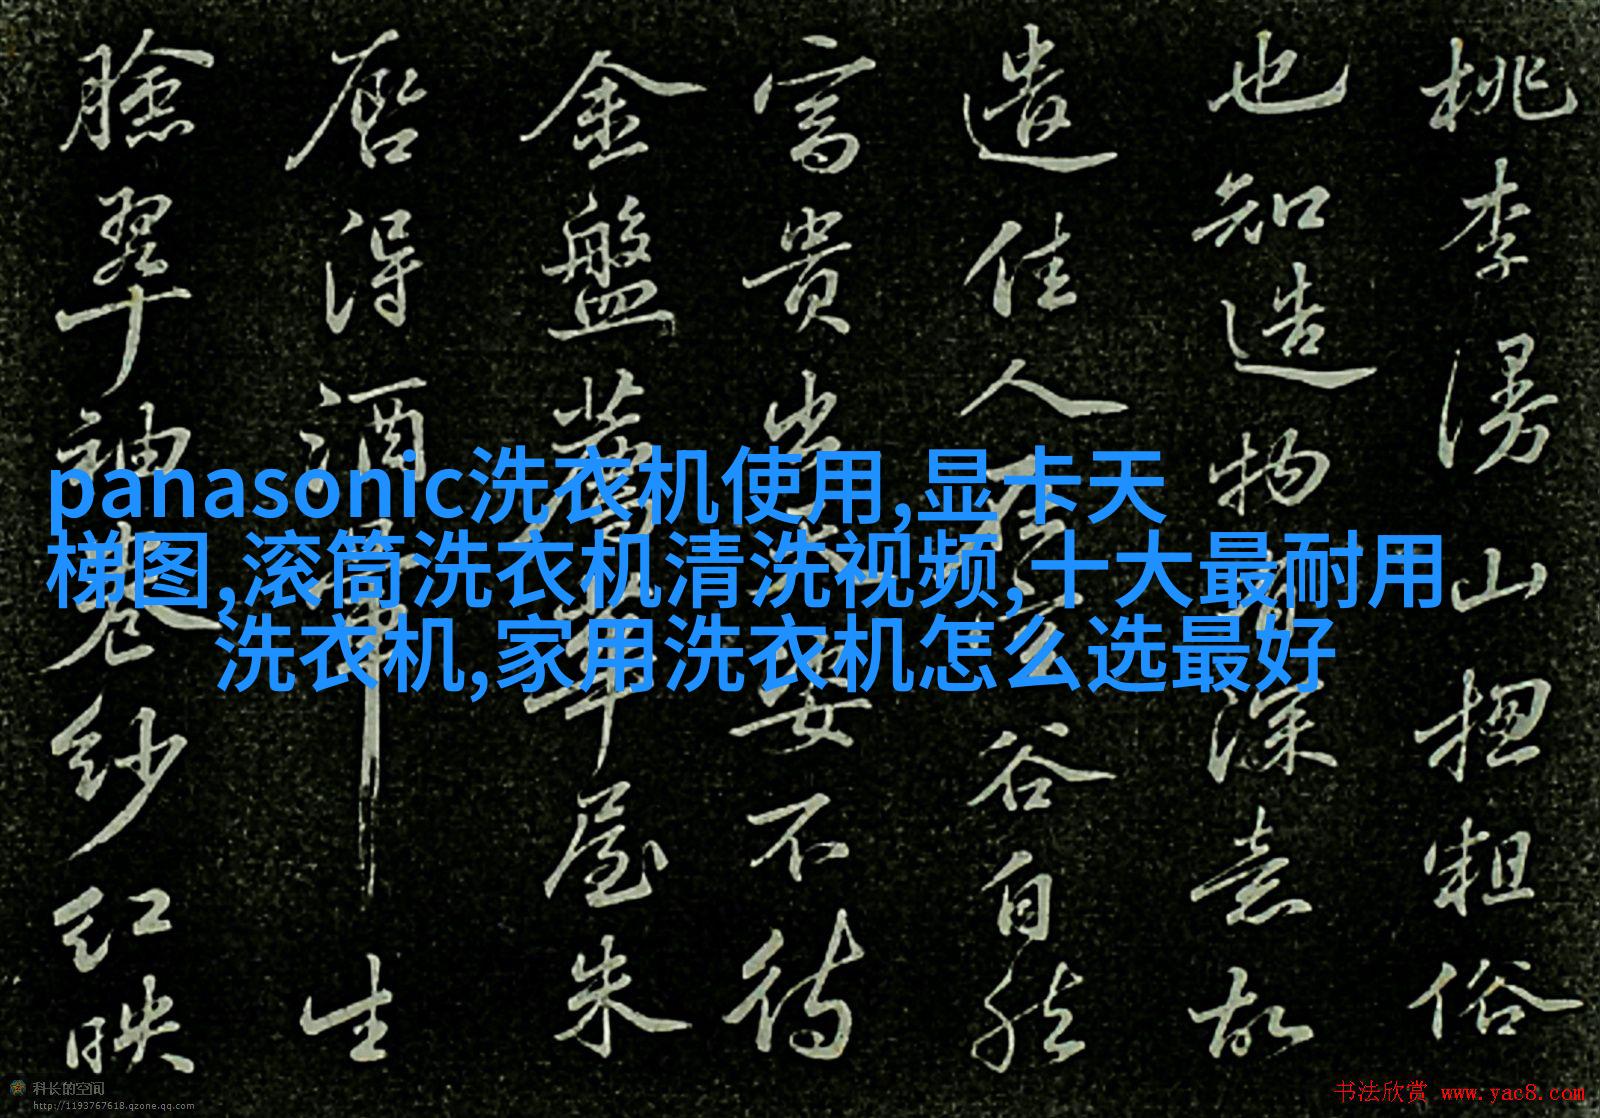 桃李漫山揔粗俗
也知造物有深意故
遣佳人在空谷自然
富貴出天姿不待
金盤薦華屋朱
唇得酒暈生
臉翠袖卷紗紅映
panasonic洗衣机使用,显卡天
梯图,滚筒洗衣机清洗视频,十大最耐用
洗衣机,家用洗衣机怎么选最好
科长的空间
http://1193767618.qzone.qq.com
书法欣赏 www.yac8.com